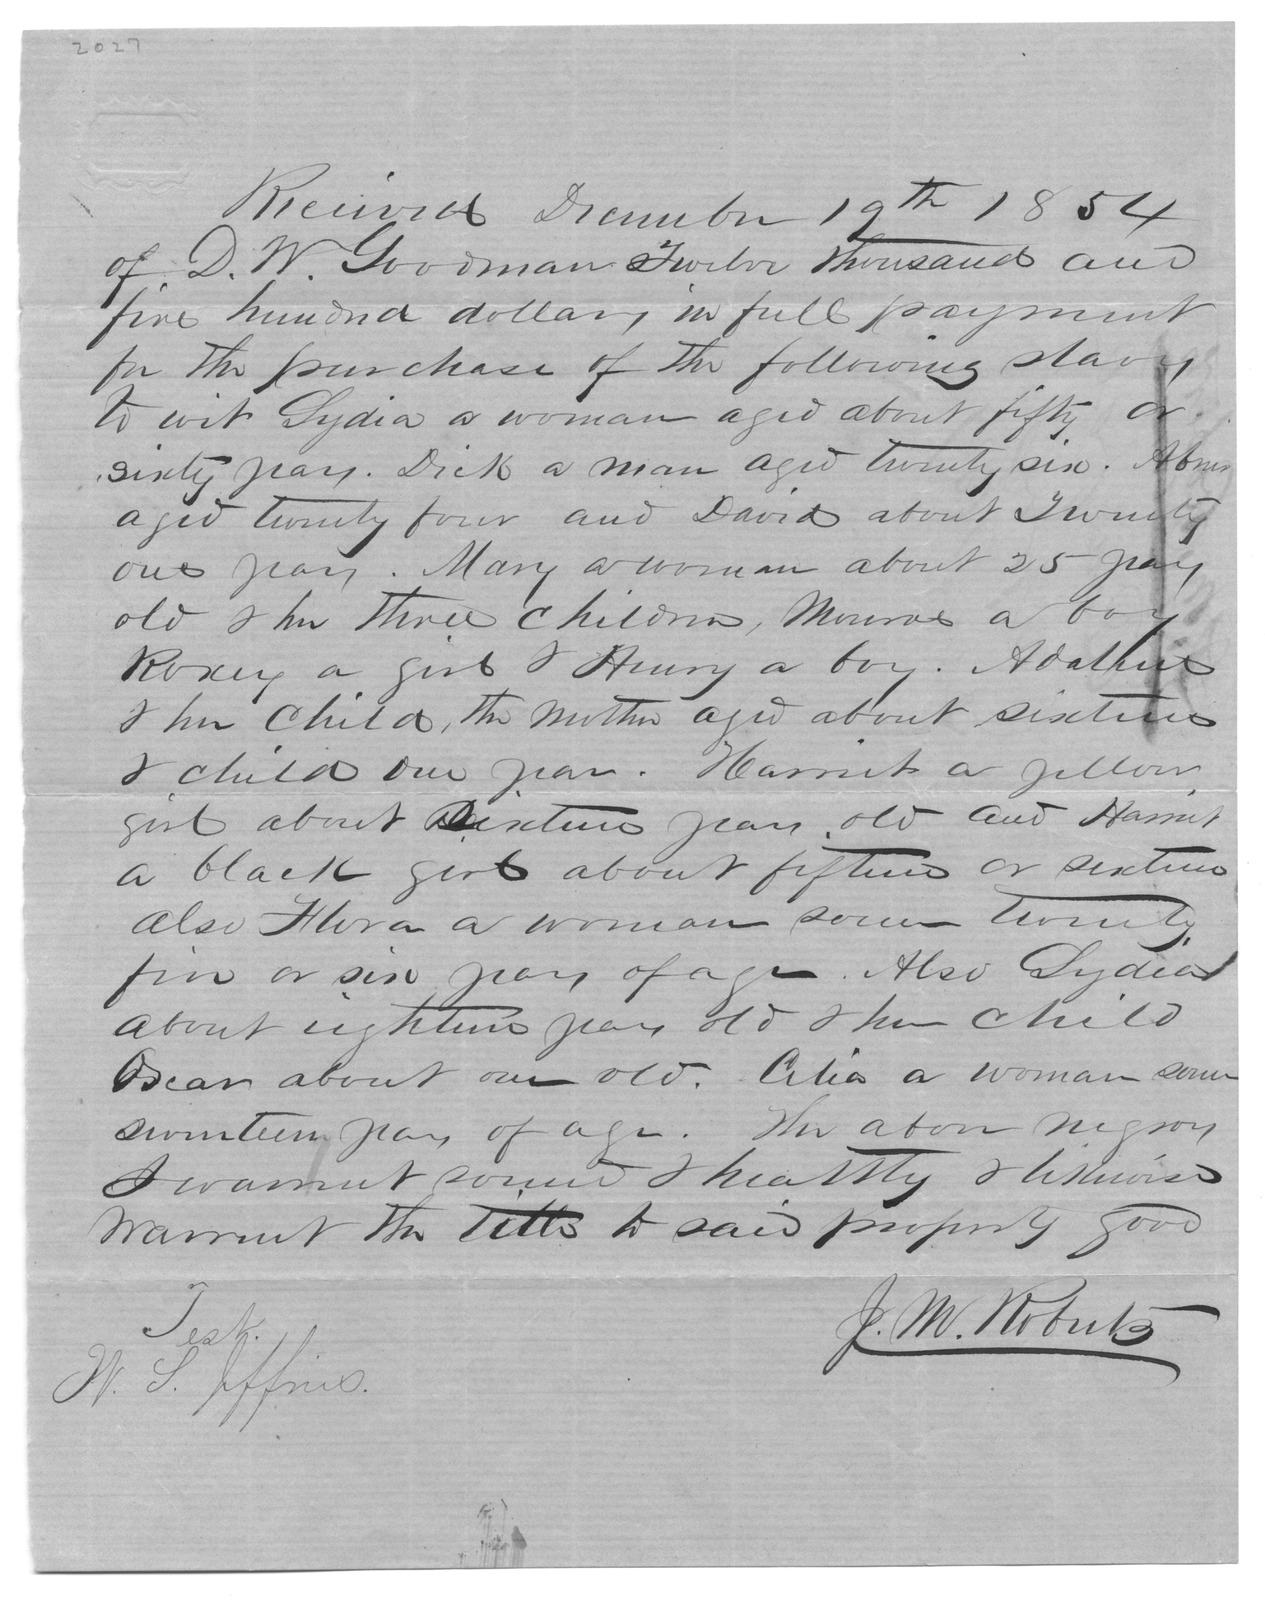 2027
Received December 19th 1854
of D. W. Goodman Twelve thousand and
five hundred dollars, in full payment
for the purchase of the following slaves,
to wit Lydia a woman aged about fifty or
sixty years. Dick a man aged twenty six. Abner
aged twenty four and David about Twenty
one years. Mary a woman about 25 years
old & her three children, Monroe a boy
Roxey a girl & Henry a boy. Adaline
& her child, the mother aged about sixteen
& child one year. Harriet a yellow
girl about Sixteen years old and Harriet
a black girl about fifteen or sixteen
also Flora a woman some twenty
five or six years of age. Also Lydia
about eighteen years old & her child
Oscar about one old. Celia a woman some
seventeen years of age. The above negroes
I warrent sound & healthy & likewise
warrent the title to said property good
J. M. Roberts
Test.
W. S. Jeffries.